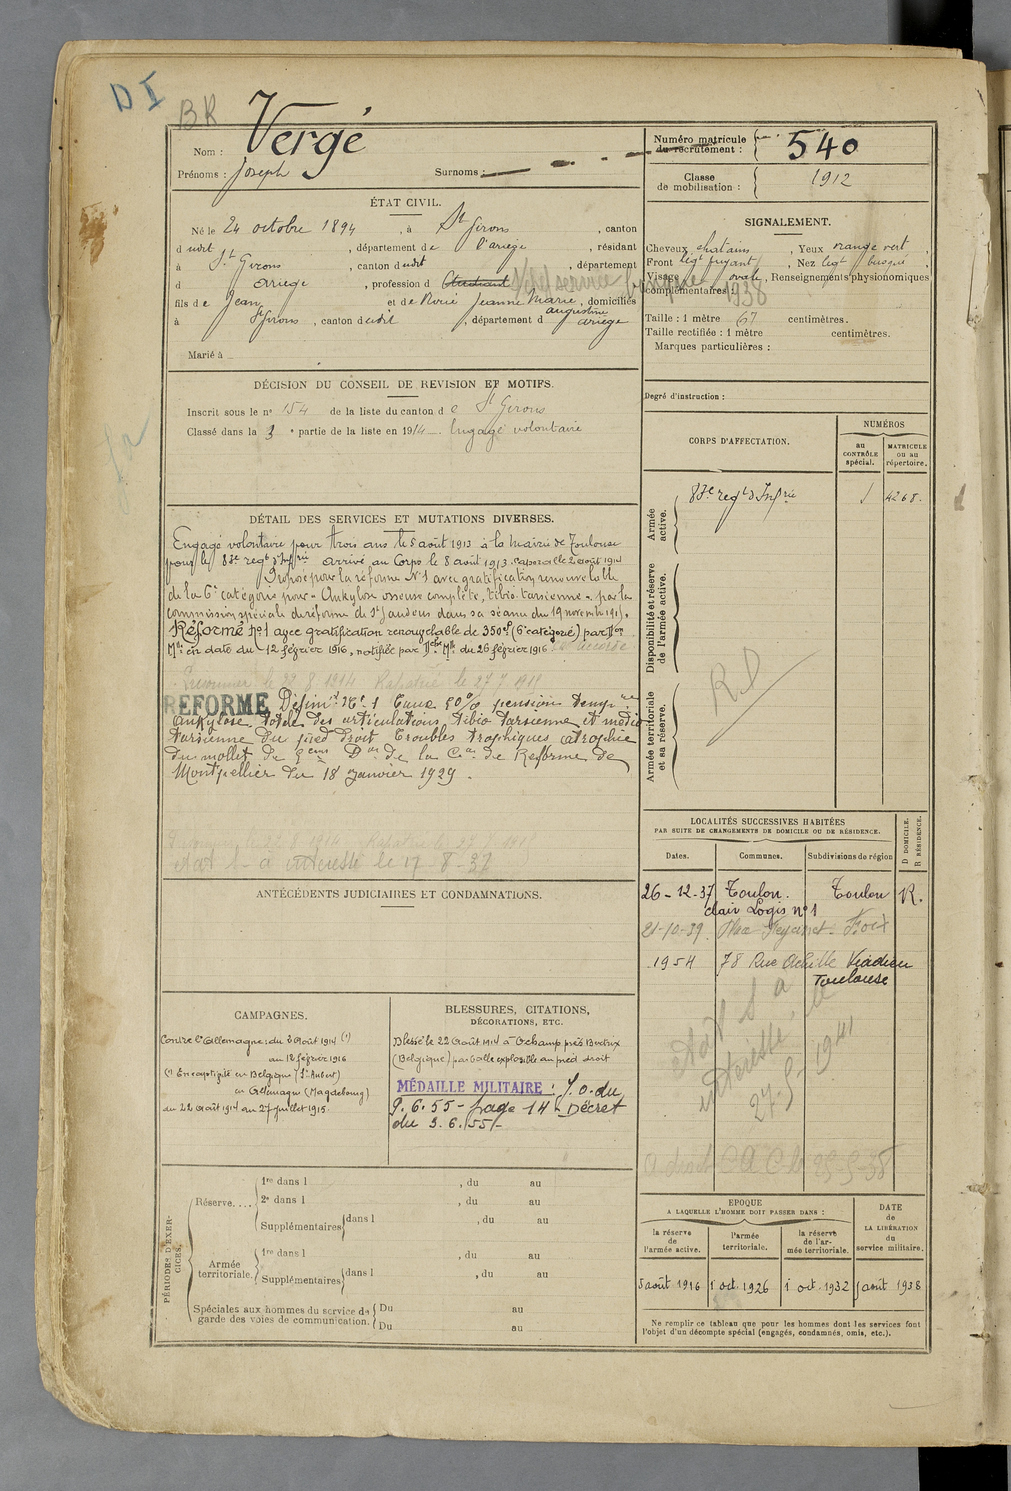 D I
BR
Nom : Vergé
Prénoms : Joseph
Surnoms :
Numéro matricule
du recrutement : 540
Classe
de mobilisation : 1912
ÉTAT CIVIL.
Né le 24 octobre 1894, à St Girons, canton
dudit, département de l'ariège, résidant
à St Girons, canton dudit, département
d ariège, profession d Etudiant
fils de Jean et de Rouié Jeanne Marie, domiciliés
augustine
à St Girons, canton dudit, département d ariège
Marié à
SIGNALEMENT.
Cheveux chatains, Yeux orangé vert,
Front légt fuyant, Nez légt busqué,
Visage ovale, Renseignements physionomiques
complémentaires :
1938
Taille : 1 mètre 67 centimètres.
Taille rectifiée : 1 mètre centimètres.
Marques particulières :
DÉCISION DU CONSEIL DE REVISION ET MOTIFS.
Inscrit sous le n° 154 de la liste du canton de St Girons
Classé dans la 3e partie de la liste en 1914. Engagé volontaire
Degré d'instruction :
CORPS D'AFFECTATION.
NUMÉROS
au
CONTRÔLE
spécial.
MATRICULE
ou au
répertoire.
Armée
active.
83e regt d'Infrie
4268.
Disponibilité et réserve
de l'armée active.
Armée territoriale
et sa réserve.
RD
DÉTAIL DES SERVICES ET MUTATIONS DIVERSES.
Engagé volontaire pour trois ans le 5 août 1913 à la mairie de Toulouse
pour le 83e regt d'Infrie arrivé au Corps le 8 août 1913. Caporal le 2 août 1914
Proposé pour la réforme N°1 avec gratification renouvelable
de la 6e catégorie pour "Ankylose osseuse complète, tibio-tarsienne" par la
commission spéciale de réforme de St Gaudens dans sa séance du 19 novembre 1915.
Réformé n°1 avec gratification renouvelable de 350f (6e catégorie) par Don
Mlle en date du 12 février 1916, notifiée par Dche Mlle du 26 février 1916
Prisonnier le 28.8.1914 Rapatrié le 27.7.1915
REFORMÉ Définit N° 1 Taux 50% pension tempre
ankylose totale des articulations tibio tarsienne et médio
tarsienne du pied droit troubles trophiques atrophie
du mollet de 5cms Don de la Con de Réforme de
Montpellier du 18 janvier 1929.
état S. à intéressé le 17-8-37
ANTÉCÉDENTS JUDICIAIRES ET CONDAMNATIONS.
LOCALITÉS SUCCESSIVES HABITÉES
PAR SUITE DE CHANGEMENTS DE DOMICILE OU DE RÉSIDENCE.
D DOMICILE.
R RÉSIDENCE.
Dates.
Communes.
Subdivisions de région
26-12-37 Toulon. Toulon R.
clair Logis n°1
21-10-39 Foix
1954 78 Rue Achille Viadieu
Toulouse
état S à
intéressé le
27-5-1941
CAMPAGNES.
Contre l'Allemagne : du 2 août 1914 (1)
au 12 février 1916
(1) En captivité en Belgique (St Hubert)
en Allemagne (Magdebourg)
du 22 août 1914 au 27 juillet 1915.
BLESSURES, CITATIONS,
DÉCORATIONS, ETC.
Blessé le 22 août 1914 à Ochamp près Bertrix
(Belgique) par balle explosible au pied droit
MÉDAILLE MILITAIRE : J.O. du
9.6.55 - page 14 - Décret
du 3.6.55/-
PÉRIODES D'EXERCICES.
Réserve....
1re dans l , du au
2e dans l , du au
Supplémentaires dans l , du au
Armée
territoriale.
1re dans l , du au
Supplémentaires dans l , du au
Spéciales aux hommes du service de
garde des voies de communication.
Du au
Du au
EPOQUE
A LAQUELLE L'HOMME DOIT PASSER DANS :
la réserve
de
l'armée active.
l'armée
territoriale.
la réserve
de l'ar-
mée territoriale.
DATE
de
LA LIBÉRATION
du
service militaire.
5 août 1916
1 oct. 1926
1 oct. 1932
5 août 1938
Ne remplir ce tableau que pour les hommes dont les services font
l'objet d'un décompte spécial (engagés, condamnés, omis, etc.).